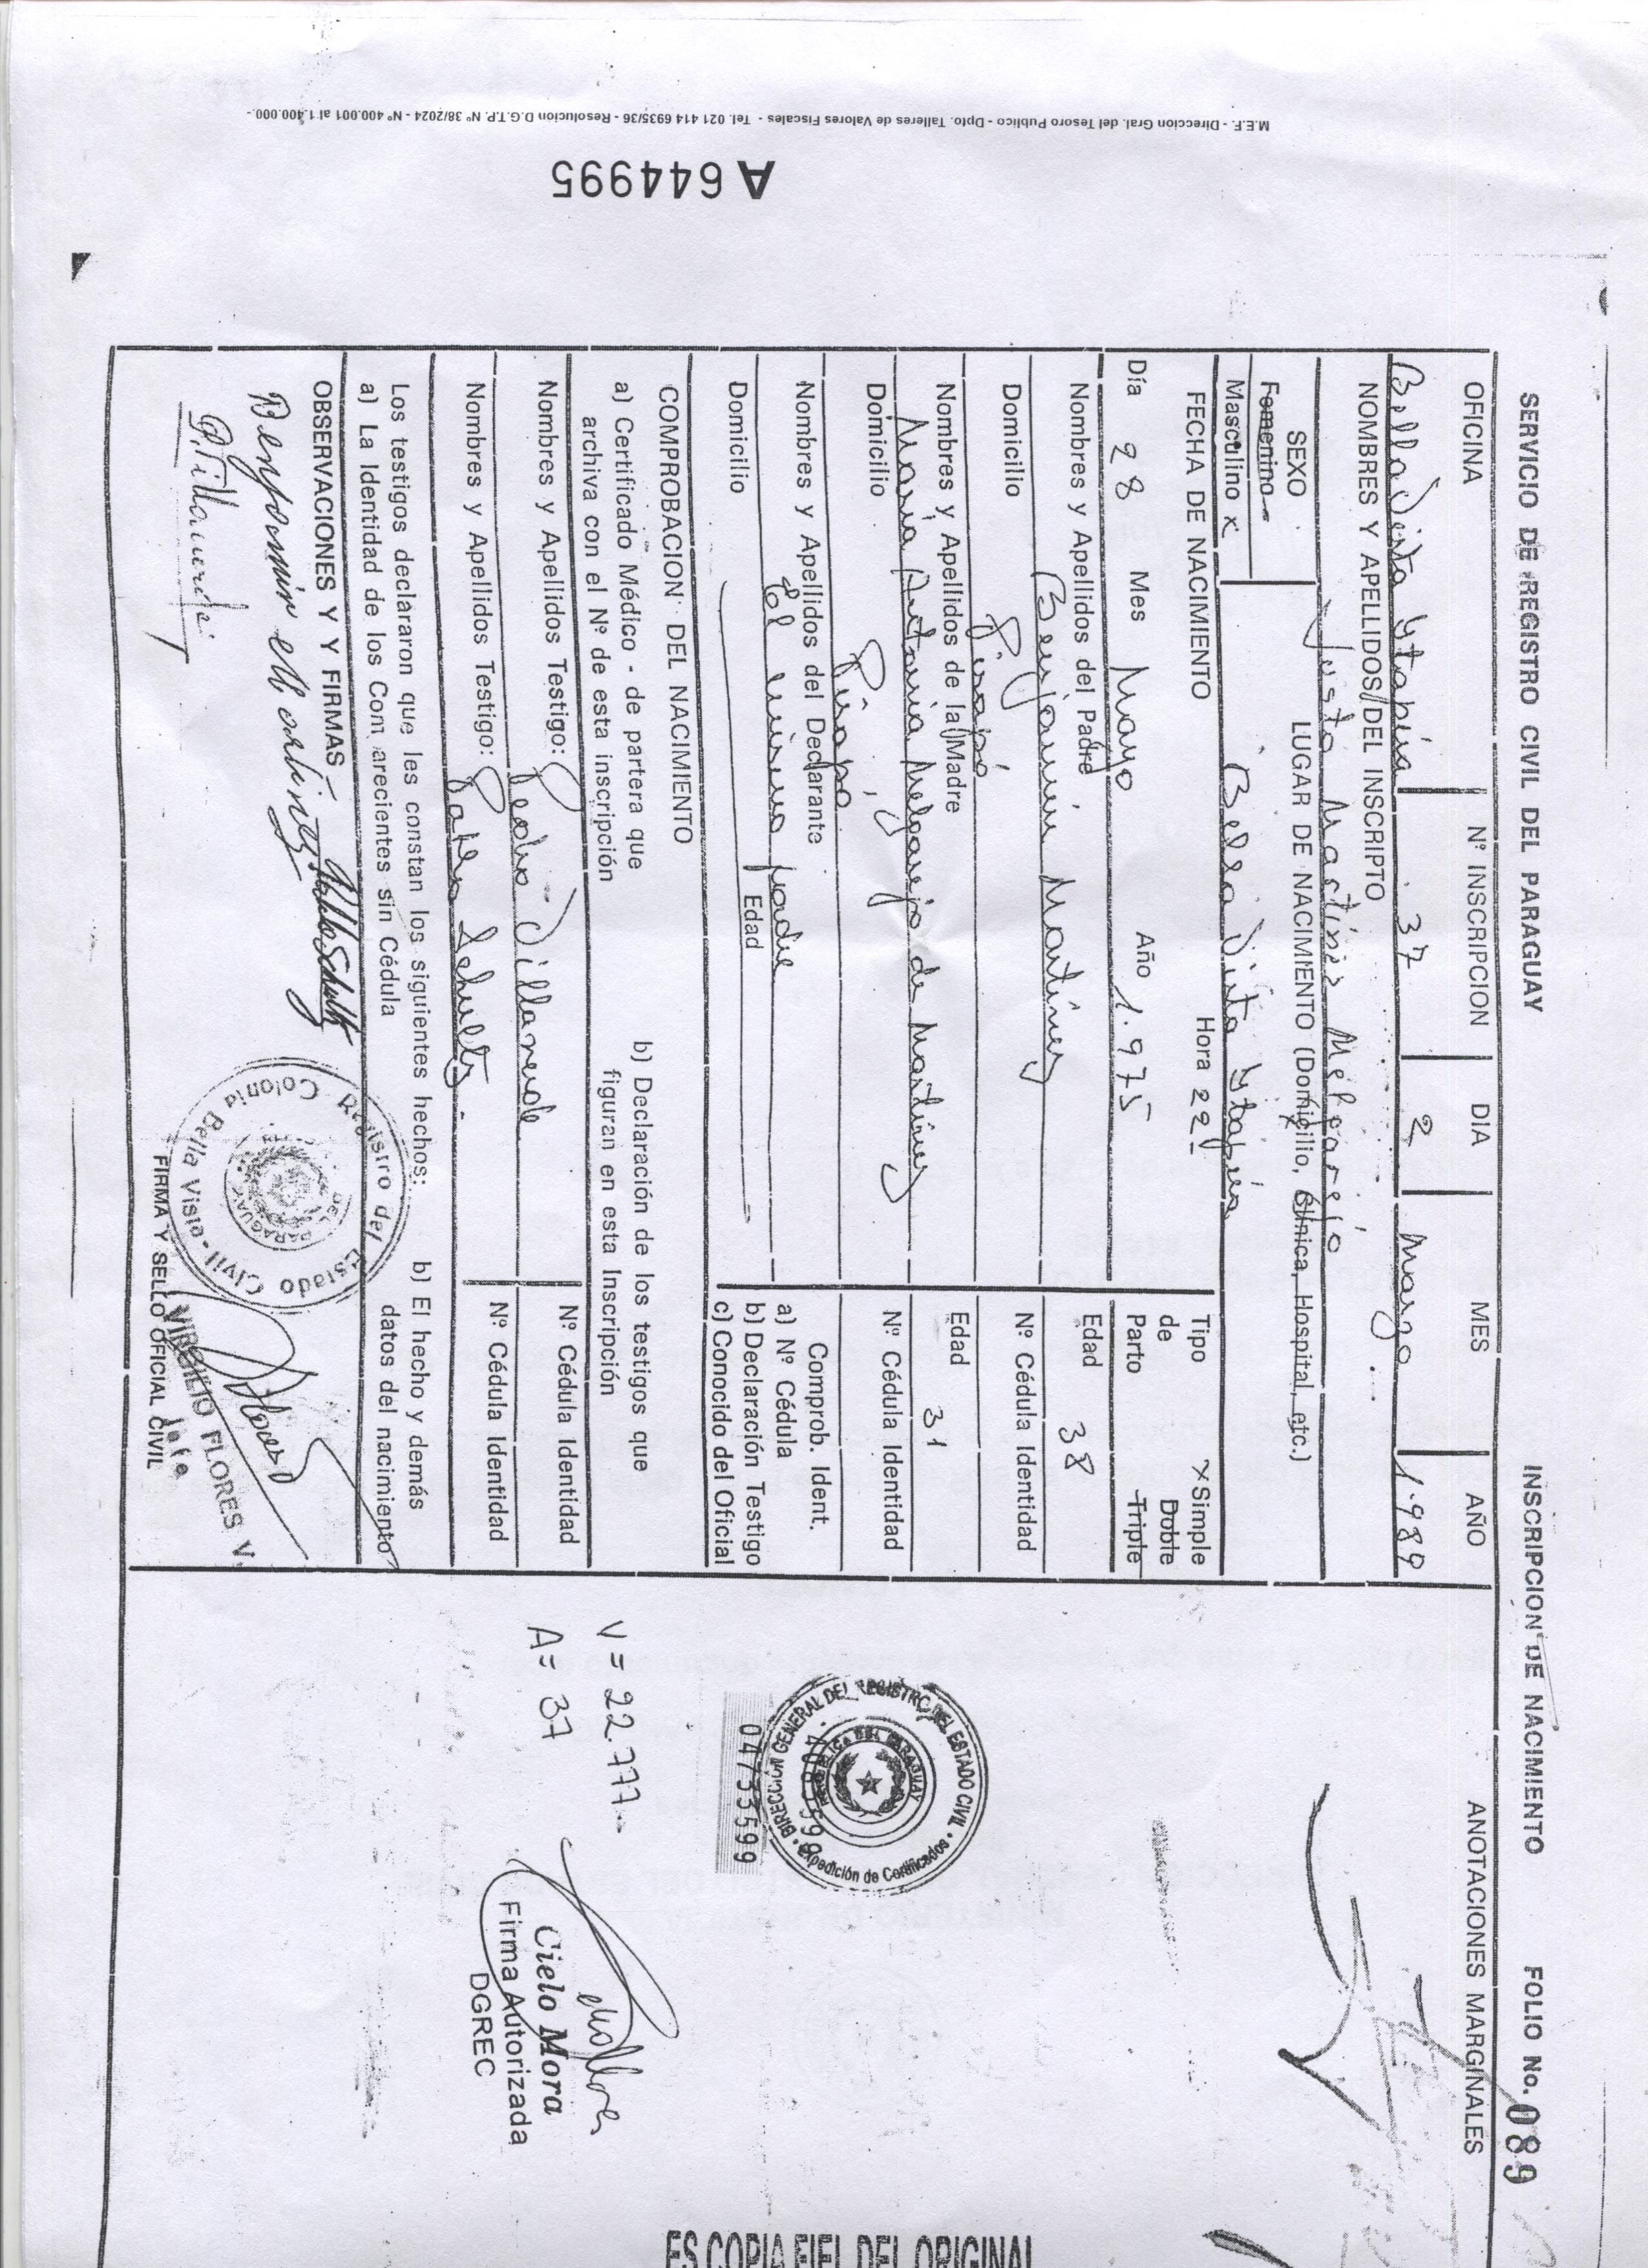 M.E.F. - Direccion Gral. del Tesoro Publico - Dpto. Talleres de Valores Fiscales - Tel. 021 414 6935/36 - Resolucion D.G.T.P. Nº 38/2024 - Nº 400.001 al 1.400.000.-
A 644995
SERVICIO DE REGISTRO CIVIL DEL PARAGUAY INSCRIPCION DE NACIMIENTO FOLIO No. 089
OFICINA Nº INSCRIPCION DIA MES AÑO ANOTACIONES MARGINALES
Bella Vista Ytapúa 37 2 Marzo 1.989
NOMBRES Y APELLIDOS DEL INSCRIPTO
Justo Martínez Melgarejo
SEXO LUGAR DE NACIMIENTO (Domicilio, Clínica, Hospital, etc.)
Femenino
Masculino x Bella Vista Ytapúa
FECHA DE NACIMIENTO Hora 22 Tipo de Parto x Simple Doble Triple
Día 28 Mes Mayo Año 1.975
Nombres y Apellidos del Padre Edad 38
Benjamín Martínez
Domicilio Nº Cédula Identidad
Pirapó
Nombres y Apellidos de la Madre Edad 31
María Antonia Melgarejo de Martínez
Domicilio Nº Cédula Identidad
Pirapó
Nombres y Apellidos del Declarante Comprob. Ident.
El mismo padre a) Nº Cédula
Domicilio Edad b) Declaración Testigo
c) Conocido del Oficial
COMPROBACION DEL NACIMIENTO
a) Certificado Médico - de partera que b) Declaración de los testigos que
archiva con el Nº de esta inscripción figuran en esta Inscripción
Nombres y Apellidos Testigo: Pedro Villaverde Nº Cédula Identidad
Nombres y Apellidos Testigo: Pablo Schultz Nº Cédula Identidad
Los testigos declararon que les constan los siguientes hechos: b) El hecho y demás
a) La Identidad de los Comparecientes sin Cédula datos del nacimiento
OBSERVACIONES Y FIRMAS
Benjamín Martínez Pablo Schultz
P. Villaverde
Registro del Estado Civil
Colonia Bella Vista
DEL PARAGUAY
VIRGILIO FLORES V.
Jefe
FIRMA Y SELLO OFICIAL CIVIL
DIRECCIÓN GENERAL DEL REGISTRO DEL ESTADO CIVIL
REPUBLICA DEL PARAGUAY
Expedición de Certificados
04733599
V = 22.777
A = 37
Cielo Mora
Firma Autorizada
DGREC
ES COPIA FIEL DEL ORIGINAL